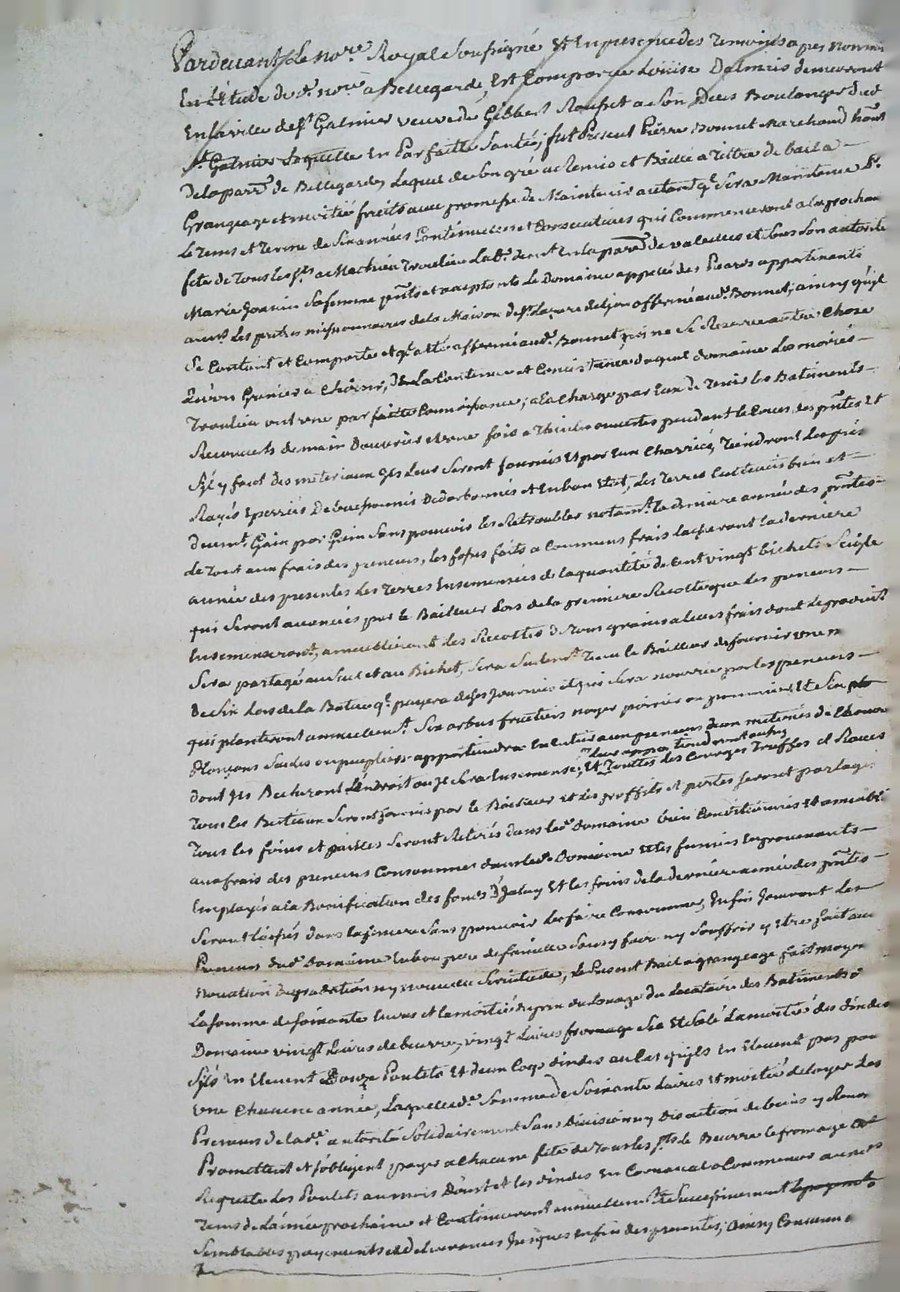 Pardevant Le no.re Royal Soussigné Et En presence des Temoins apres nommés
En L'Etude de d.t nore a Bellegarde, Est Comparue Louise Dalmais demeurant
En la ville de s.t Galmier veuve de Gilbert Roufret a son Deces Boulanger dud
st Galmier Laquelle En Parfaitte Santé; fut Present Pierre Bonnet Marchand
de la par.e de Bellegarde, Lequel de son gré a Remis et Baillé a Tittre de bail a
Grangeage et moitié fruits avec promesse de Maintenir autant q.l Sera Maintenu Pr.
Le tems et Terme de Six années Continuelles et Consecutives qui Commenceront a la prochaine
fête de Tous les s.ts a Mathieu Troulieu Lab.r dem.t En la par.e de valeilles et sous son autorité
Marie Jeanin Sa femme p.nts et acceptants Le Domaine appellé des Poares appartenant
aux Les pretres missionnaires de la Maison de s.t Lazare de Lyon affermé aud. Bonnet; ainsy qu'il
Se Contient et Comporte et q.l a été affermé aud. Bonnet qui ne Se Reserve autre Chose
Qu'un Grenier a Choisir, De La Contenue et Consistance duquel domaine Les mariés
Troulieu ont une parfaitte Connoissance; a La Charge par Eux de Tenir les Batiments
Recouverts de main D'ouvrier et une fois a Thuiles ouvertes pendant le Cours des p.ntes Et
S'il y faut des materiaux Ils Leur Seront fournis Et par Eux Charriés, Tiendront Les prés
Razés Eperriés De buissonnés Dedarbonnés et En bon Etat, Les Terres Cultivées bien et
duem.t Gain par Gain Sans pouvoir les Retroubler notam.t La derniere année des p.ntes
de Tout aux frais des preneurs, les fosses faits a Communs frais Laisseront La derniere
année des presentes Les Terres Ensemencées de la quantité de Cent vingt bichets Seigle
qui Seront avancés par le Bailleur Lors de la premiere Recolte que Les preneurs
Ensemenseront, ameubleront Les Recoltes de Tous grains a leurs frais dont Le produit
Sera partagé au Sut et au Bichet, Sera Seulem.t Tenu Le Bailleur de fournir un
De Six Lors de la Batue q.l payera de ses Journées et qui Sera nourrie par Les preneurs
qui planteront annuellem.t Six arbres fruitiers noyer poirier ou pommier Et Six
Plançons Saules ou peupliers appartiendra En Entier aux preneurs deux meterées de
Leur appartiendront aussy
dont Ils Becheront L'Endroit ou Il Sera Ensemensé; Et Toutes Les Courges Truffes et Raves
Tous Les Bestiaux Seront fournis par le Bailleur Et Les proffits et pertes Seront partagés
Tous Les foins et pailles Seront Retirés dans led. Domaine bien Conditionnés et amenblé
aux frais des preneurs Consommés dans led. Domaine Et les fumiers En provenants
Employés a la Bonification des fonds d'Jceluy Et les foins de la derniere année des p.ntes
Seront Laissés dans la feniere Sans pouvoir Les faire Consommer, Enfin Jouiront Les
Preneurs dud. Domaine En bon pere de familles Sans y faire ny Souffrir y Etre fait aucune
novation Degradation ny nouvelle Servitude, Le Present Bail a grangeage fait moyenant
La Somme de Soixante Livres et La moitié du prix du Louage du Locataire des Batiments du
Domaine vingt Livres de beurre, vingt Livres fromage Sec Et Salé La moitié des dindes
S'ils En Elevent Douze Poulets Et deux Coqs dindes au Cas qu'ils En Elevent pas pour
une Chacune année, Laquelle d. Somme de Soixante Livres Et moitié de loyer Les
Preneurs de lad. autorité Solidairement Sans Division ny Discution de biens y Renon
Promettent et s'obligent payer a Chacune fête de Tous les s.ts Le Beurre le fromage a la
Requete Les Poulets au mois D'aout et Les dindes En Carnaval a Commencer au meme
Tems de L'année prochaine et Continueront annuellem.t Et Successivement
Semblables payements et delivrances Jusques En fin des presentes; ainsy Convenu